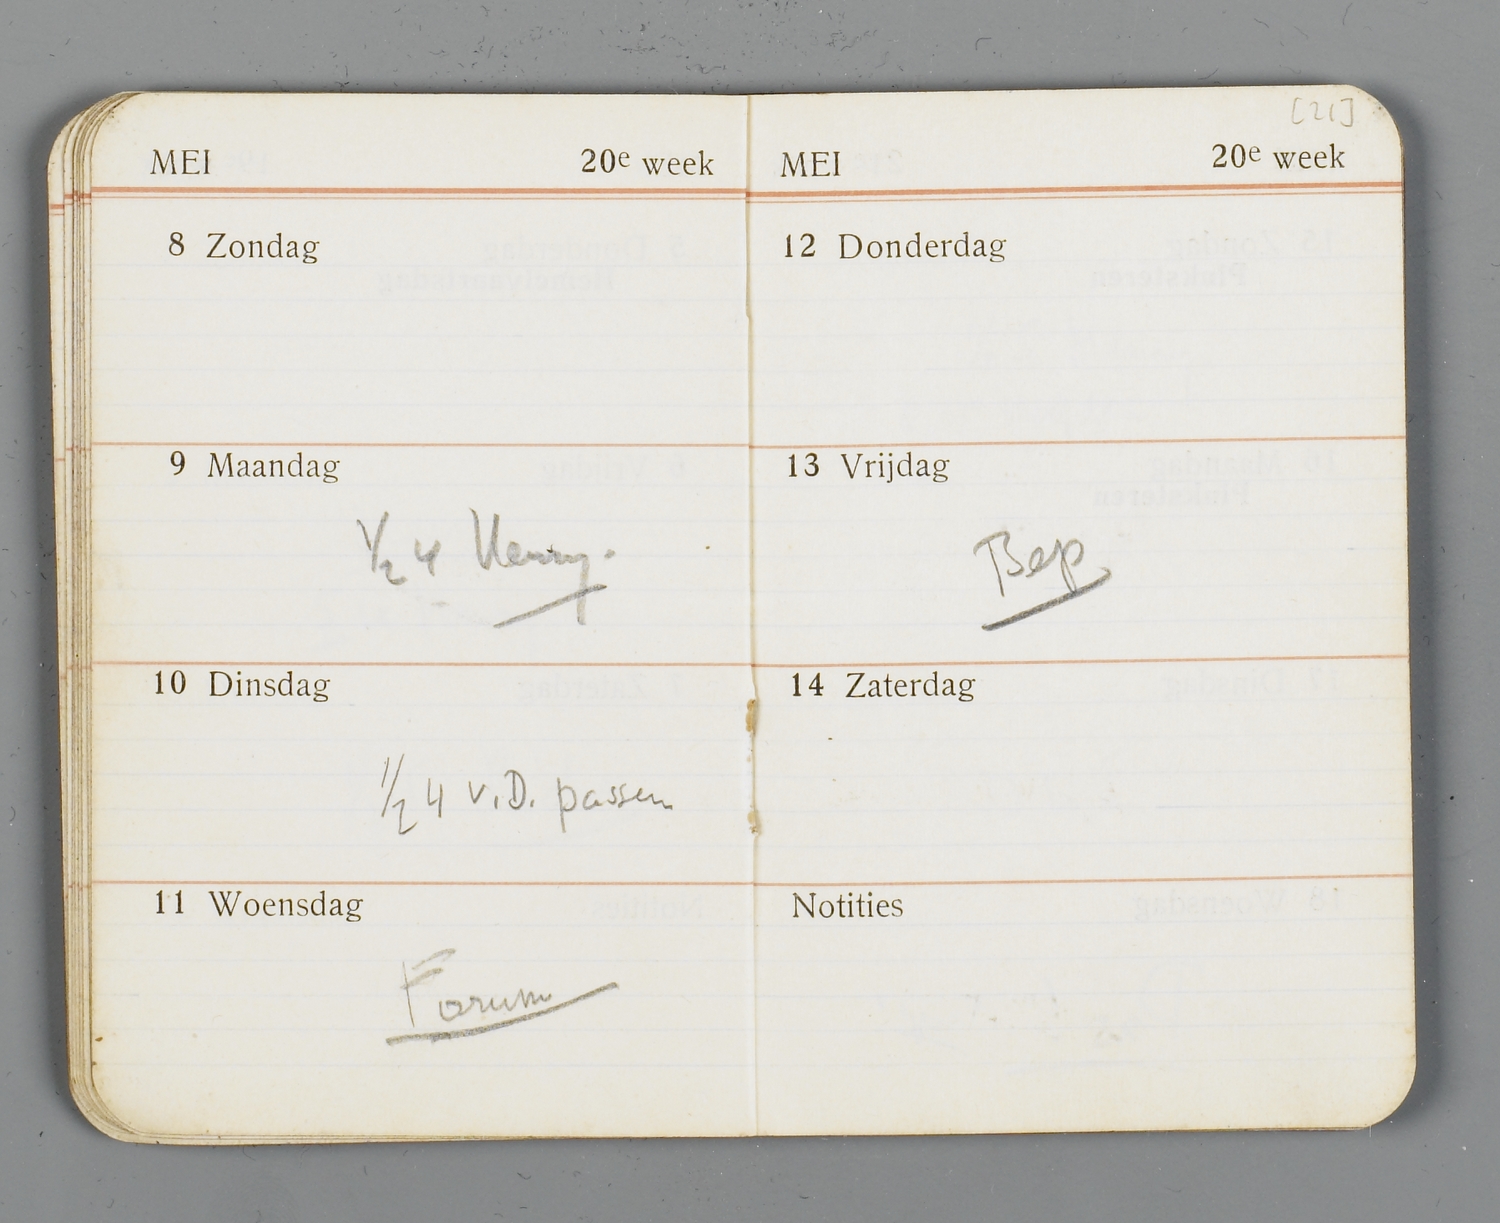 MEI 20e week
8 Zondag
9 Maandag
1/2 4 Henny.
10 Dinsdag
1/2 4 v.D. passen
11 Woensdag
Forum
[21]
MEI 20e week
12 Donderdag
13 Vrijdag
Bep
14 Zaterdag
Notities